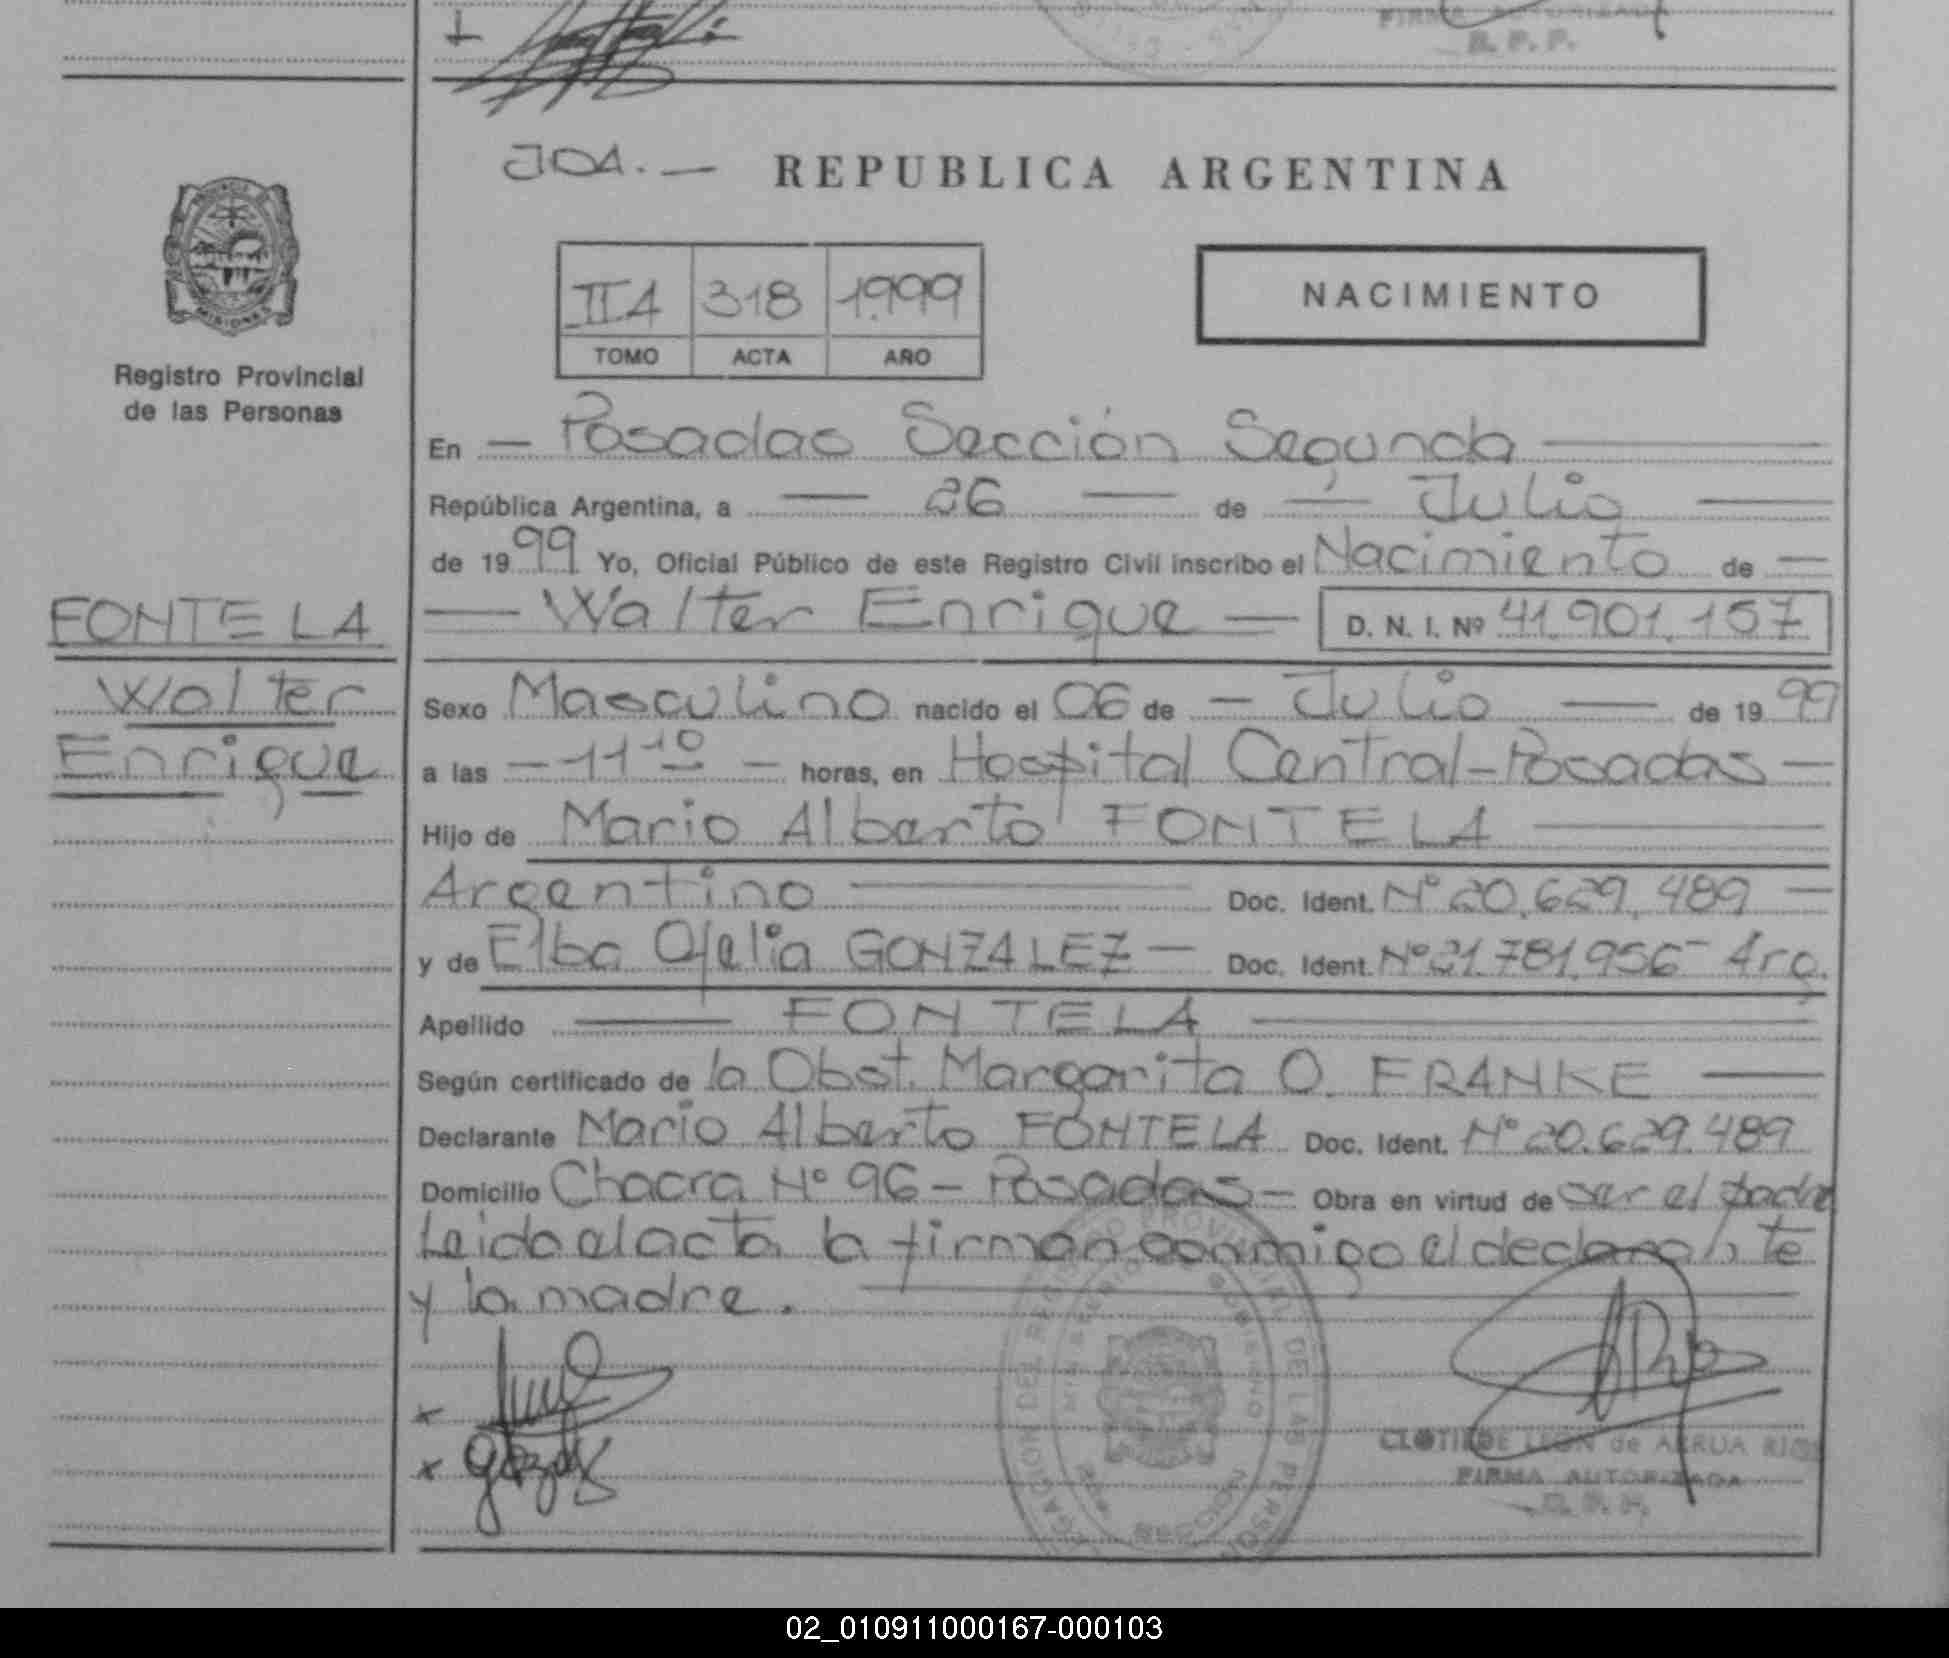 FIRMA AUTORIZADA
R. P. P.
JOA.— REPUBLICA ARGENTINA
II4 318 1999
TOMO ACTA AÑO
NACIMIENTO
MISIONES
Registro Provincial
de las Personas
En — Posadas Sección Segunda —
República Argentina, a — 26 — de — Julio —
de 1999 Yo, Oficial Público de este Registro Civil inscribo el Nacimiento de —
— Walter Enrique — D. N. I. Nº 41.901.157
FONTELA
Walter
Enrique
Sexo Masculino nacido el 06 de — Julio — de 1999
a las — 11 10 — horas, en Hospital Central-Posadas —
Hijo de Mario Alberto FONTELA —
Argentino — Doc. Ident. Nº 20.629.489 —
y de Elba Ofelia GONZALEZ — Doc. Ident. Nº 21.781.956 - Arg.
Apellido — FONTELA —
Según certificado de la Obst. Margarita O. FRANKE —
Declarante Mario Alberto FONTELA Doc. Ident. Nº 20.629.489
Domicilio Chacra Nº 96 — Posadas — Obra en virtud de ser el padre
Leida el acta la firman conmigo el declarante
y la madre. —
CLOTILDE LEON de ARRUA RIOS
FIRMA AUTORIZADA
02_010911000167-000103